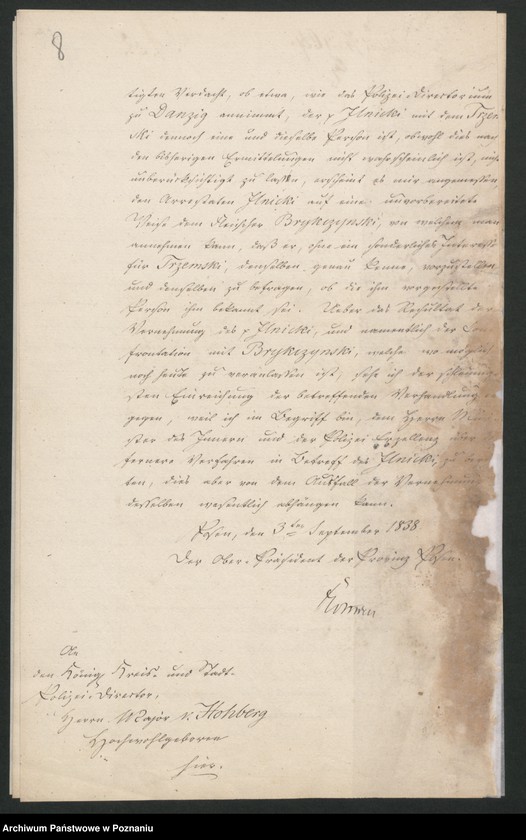 8
tigten Verdacht, ob etwa, wie das Polizei-Directorium
zu Danzig annimmt, der p Ilnicki mit dem Trzem
ski dennoch eine und dieselbe Person ist, obwohl dies nach
den bisherigen Ermittelungen nicht wahrscheinlich ist, nicht
unberücksichtigt zu lassen, erscheint es mir angemessen,
den Arrestaten Ilnicki auf eine unvorbereitete
Weise dem Fleischer Brykczynski, von welchem man
annehmen kann, daß er, ohne ein sonderliches Interesse
für Trzemski, denselben genau kenne, vorzustellen
und denselben zu befragen, ob die ihm vorgestellte
Person ihm bekannt sei. Ueber das Resultat der
Vernehmung des p Ilnicki, und namentlich der Con
frontation mit Brykczynski, welche wo möglich
noch heute zu veranlassen ist, sehe ich der schleunig
sten Einreichung der betreffenden Verhandlung
gegen, weil ich im Begriff bin, dem Herrn Mini
ster des Innern und der Polizei Exzellenz über
fernere Verfahren in Betreff des Ilnicki, zu
ten, dies aber von dem Ausfall der Vernehmung
desselben wesentlich abhängen kann.
Posen, den 3ten September 1838
Der Ober-Präsident der Provinz Posen.
An
den Königl Kreis- und Stadt-
Polizei-Director,
Herrn Major v. Hohberg
Hochwohlgeboren
hier.
Archiwum Państwowe w Poznaniu